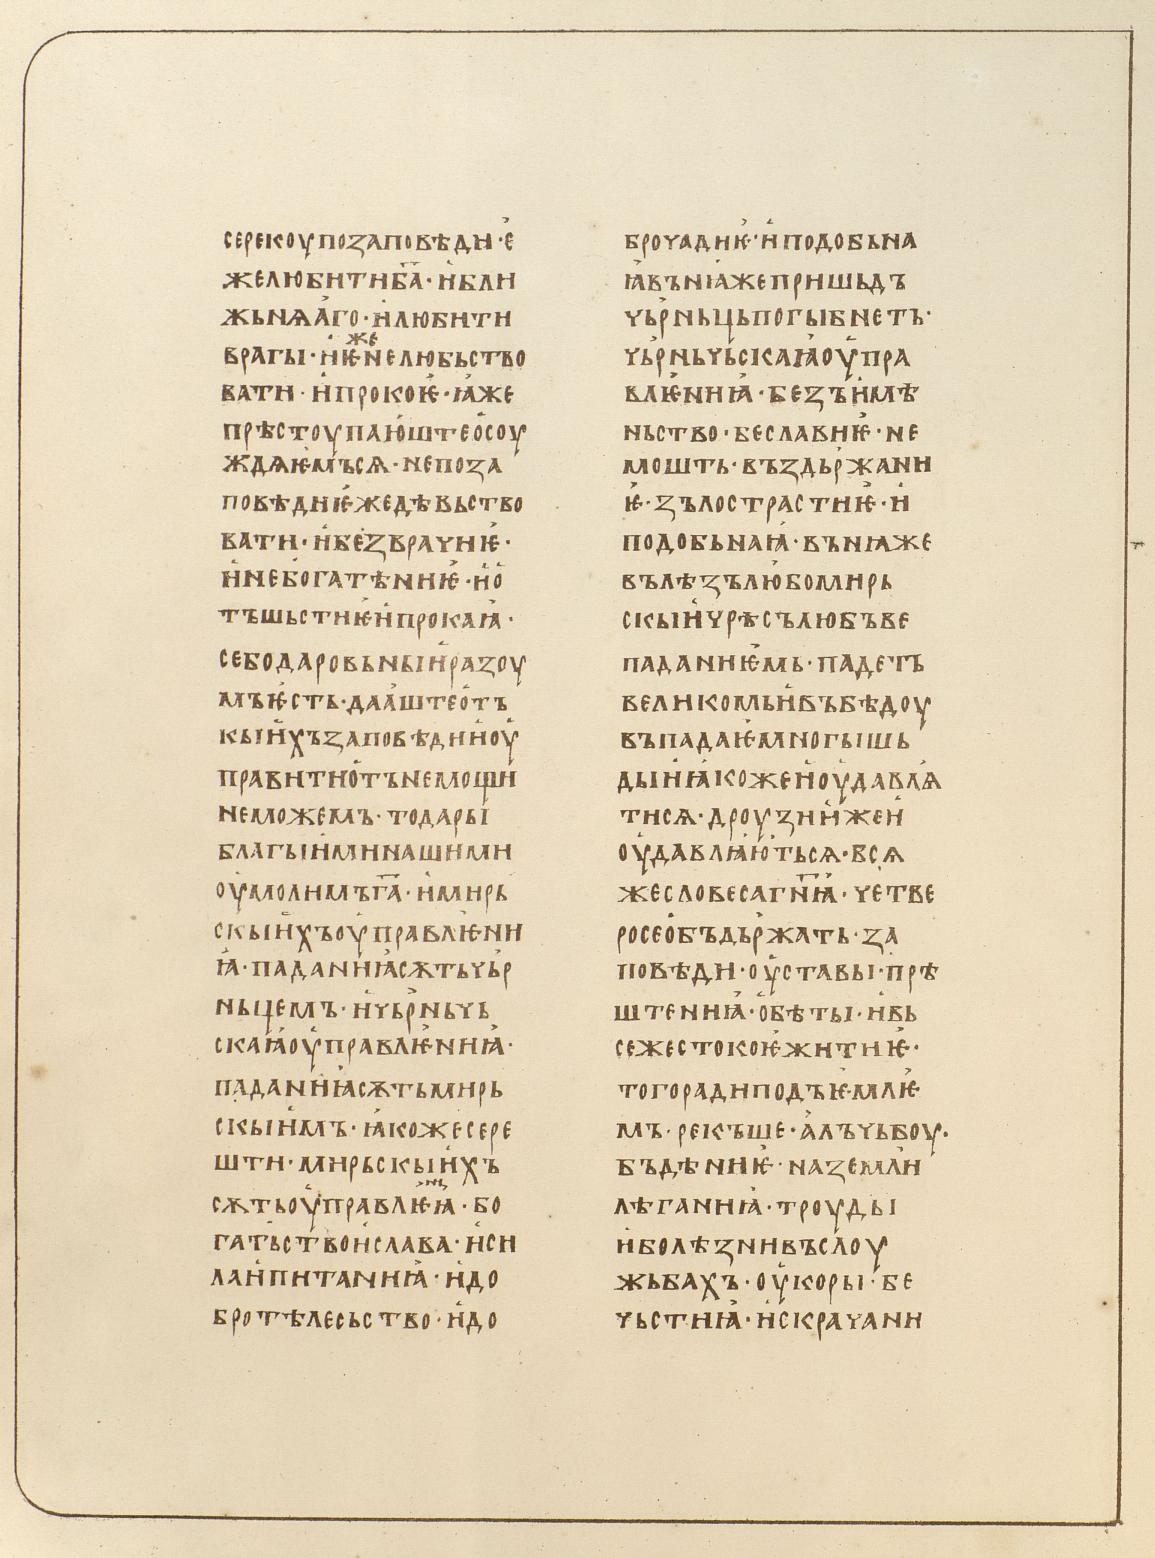 серекоупозаповѣди·е
желюбитиб҃а·ибли
жьнѩаго·илюбити
врагы·иѥженелюбьство
вати·ипрокоѥ·ꙗже
прѣстоупаюштеосоу
ждѧѥмъсѧ·непоза
повѣдиѥжедѣвьство
вати·ибезврачиѥ·
инебогатѣниѥ·ио
тъшьстиѥипрокаꙗ·
себодаровьныиразоу
мъѥсть·дааштеотъ
кыихъзаповѣдииоу
правитиотънемошти
неможемъ·тодары
благыиминашими
оумолимъг҃а·имирь
скыихъоуправлѥни
ꙗ·паданиꙗсѫтьчьр
ньцемъ·ичьрньчь
скаꙗоуправлѥниꙗ·
паданиꙗсѫтьмирь
скыимъ·ꙗкожесере
шти·мирьскыихъ
сѫтьоуправлѥниꙗ·бо
гатьствоислава·иси
лаипитаниꙗ·идо
бротѣлесьство·идо
брочадиѥ·иподобьна
ꙗвънꙗжепришьдъ
чьрньцьпогыбнеть·
чьрньчьскаꙗоупра
влѥниꙗ·безъимѣ
ньство·беславиѥ·не
мошть·въздьржани
ѥ·зълострастиѥ·и
подобьнаꙗ·вънꙗже
вълѣзълюбомирь
скыичрѣсълюбъве
паданиѥмь·падеть
великомьивъбѣдоу
въпадаѥмногышь
дыиꙗкожеиоудавлꙗ
тисѧ·друзиижеи
оудавлꙗютьсѧ·всѧ
жесловесагн҃ꙗ·четве
росеобъдьржать·за
повѣди·оуставы·прѣ
штениꙗ·обѣты·ивь
сежестокоѥжитиѥ·
торадиподъѥмлѥ
мъ·рекъше·алъчьбоу·
бъдѣниѥ·наземли
лѣганиꙗ·троуды
иболѣзнивъслоу
жьбахъ·оукоры·бе
чьстиꙗ·искрачани